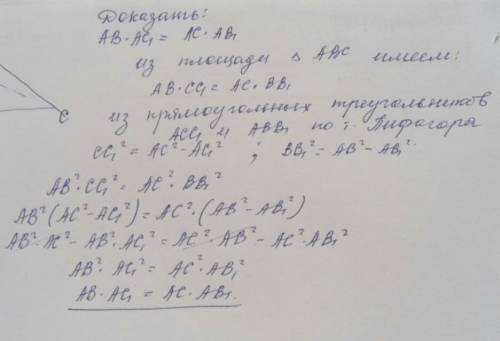 Доказать:
AB·AC₁ = AC·AB₁
из площади Δ ABC имеем:
AB·CC₁ = AC·BB₁
C
из прямоугольных треугольников
ACC₁ и ABB₁ по т. Пифагора
CC₁² = AC² - AC₁² ; BB₁² = AB² - AB₁².
AB²·CC₁² = AC²·BB₁²
AB²(AC² - AC₁²) = AC²·(AB² - AB₁²)
AB²·AC² - AB²·AC₁² = AC²·AB² - AC²·AB₁²
AB²·AC₁² = AC²·AB₁²
AB·AC₁ = AC·AB₁.